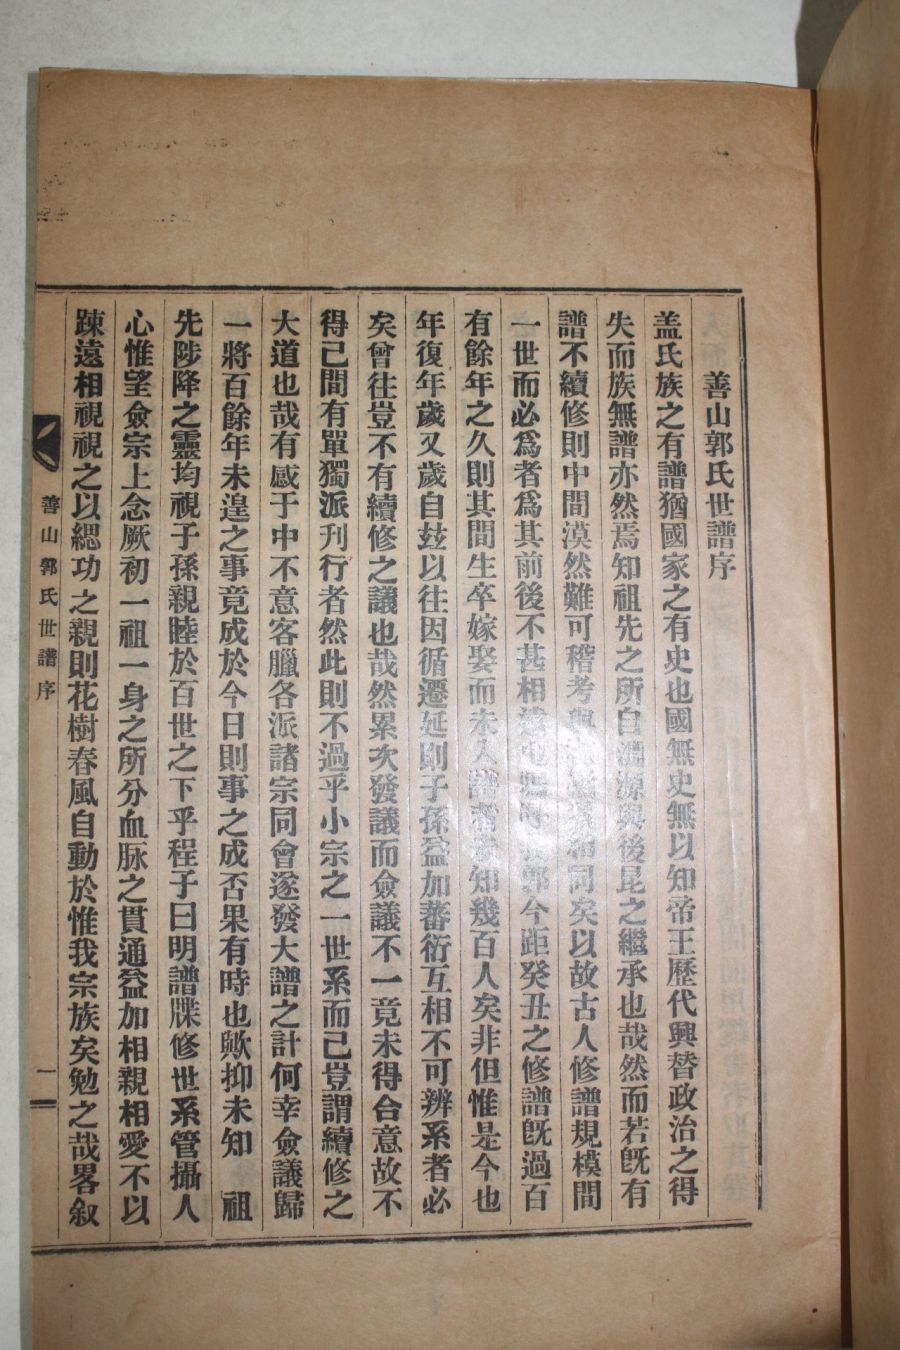 善山郭氏世譜序
盖氏族之有譜猶國家之有史也國無史無以知帝王歷代興替政治之得
失而族無譜亦然焉知祖先之所自淵源與後昆之繼承也哉然而若旣有
譜不續修則中間漠然難可稽考與 同矣以故古人修譜規模間
一世而必爲者爲其前後不甚相遠也 郭今距癸丑之修譜旣過百
有餘年之久則其間生卒嫁娶而未入譜者 知幾百人矣非但惟是今也
年復年歲又歲自玆以往因循遷延則子孫益加蕃衍互相不可辨系者必
矣曾往豈不有續修之議也哉然累次發議而僉議不一竟未得合意故不
得已間有單獨派刊行者然此則不過乎小宗之一世系而已豈謂續修之
大道也哉有感于中不意客臘各派諸宗同會遂發大譜之計何幸僉議歸
一將百餘年未遑之事竟成於今日則事之成否果有時也歟抑未知 祖
先陟降之靈均視子孫親睦於百世之下乎程子曰明譜牒修世系管攝人
心惟望僉宗上念厥初一祖一身之所分血脉之貫通益加相親相愛不以
踈遠相視視之以緦功之親則花樹春風自動於惟我宗族矣勉之哉畧叙
善山郭氏世譜序
一